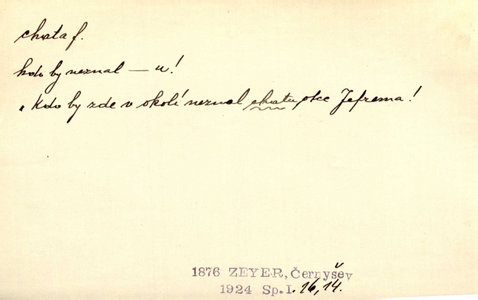 chata f.
kdo by neznal — u!
„Kdo by zde v okolí neznal chatu otce Jefrema!
1876 ZEYER, Černyšev
1924 Sp. I. 16, 14.